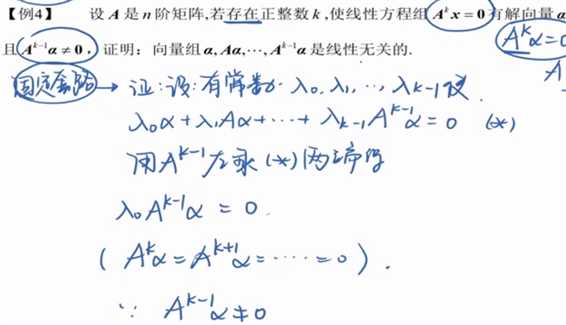 【例4】 设 A 是 n 阶矩阵,若存在正整数 k ,使线性方程组 A^k x = 0 有解向量 α
且 A^{k-1}α ≠ 0 , 证明: 向量组 α, Aα, ⋯, A^{k-1}α 是线性无关的.
A^kα=0
A
固定套路 → 证:设:有常数 λ₀, λ₁, ⋯, λ_{k-1} 使
λ₀α + λ₁Aα + ⋯ + λ_{k-1}A^{k-1}α = 0 (*)
用 A^{k-1} 左乘 (*) 两端得
λ₀A^{k-1}α = 0.
( A^kα = A^{k+1}α = ⋯⋯ = 0 ) .
∵ A^{k-1}α ≠ 0